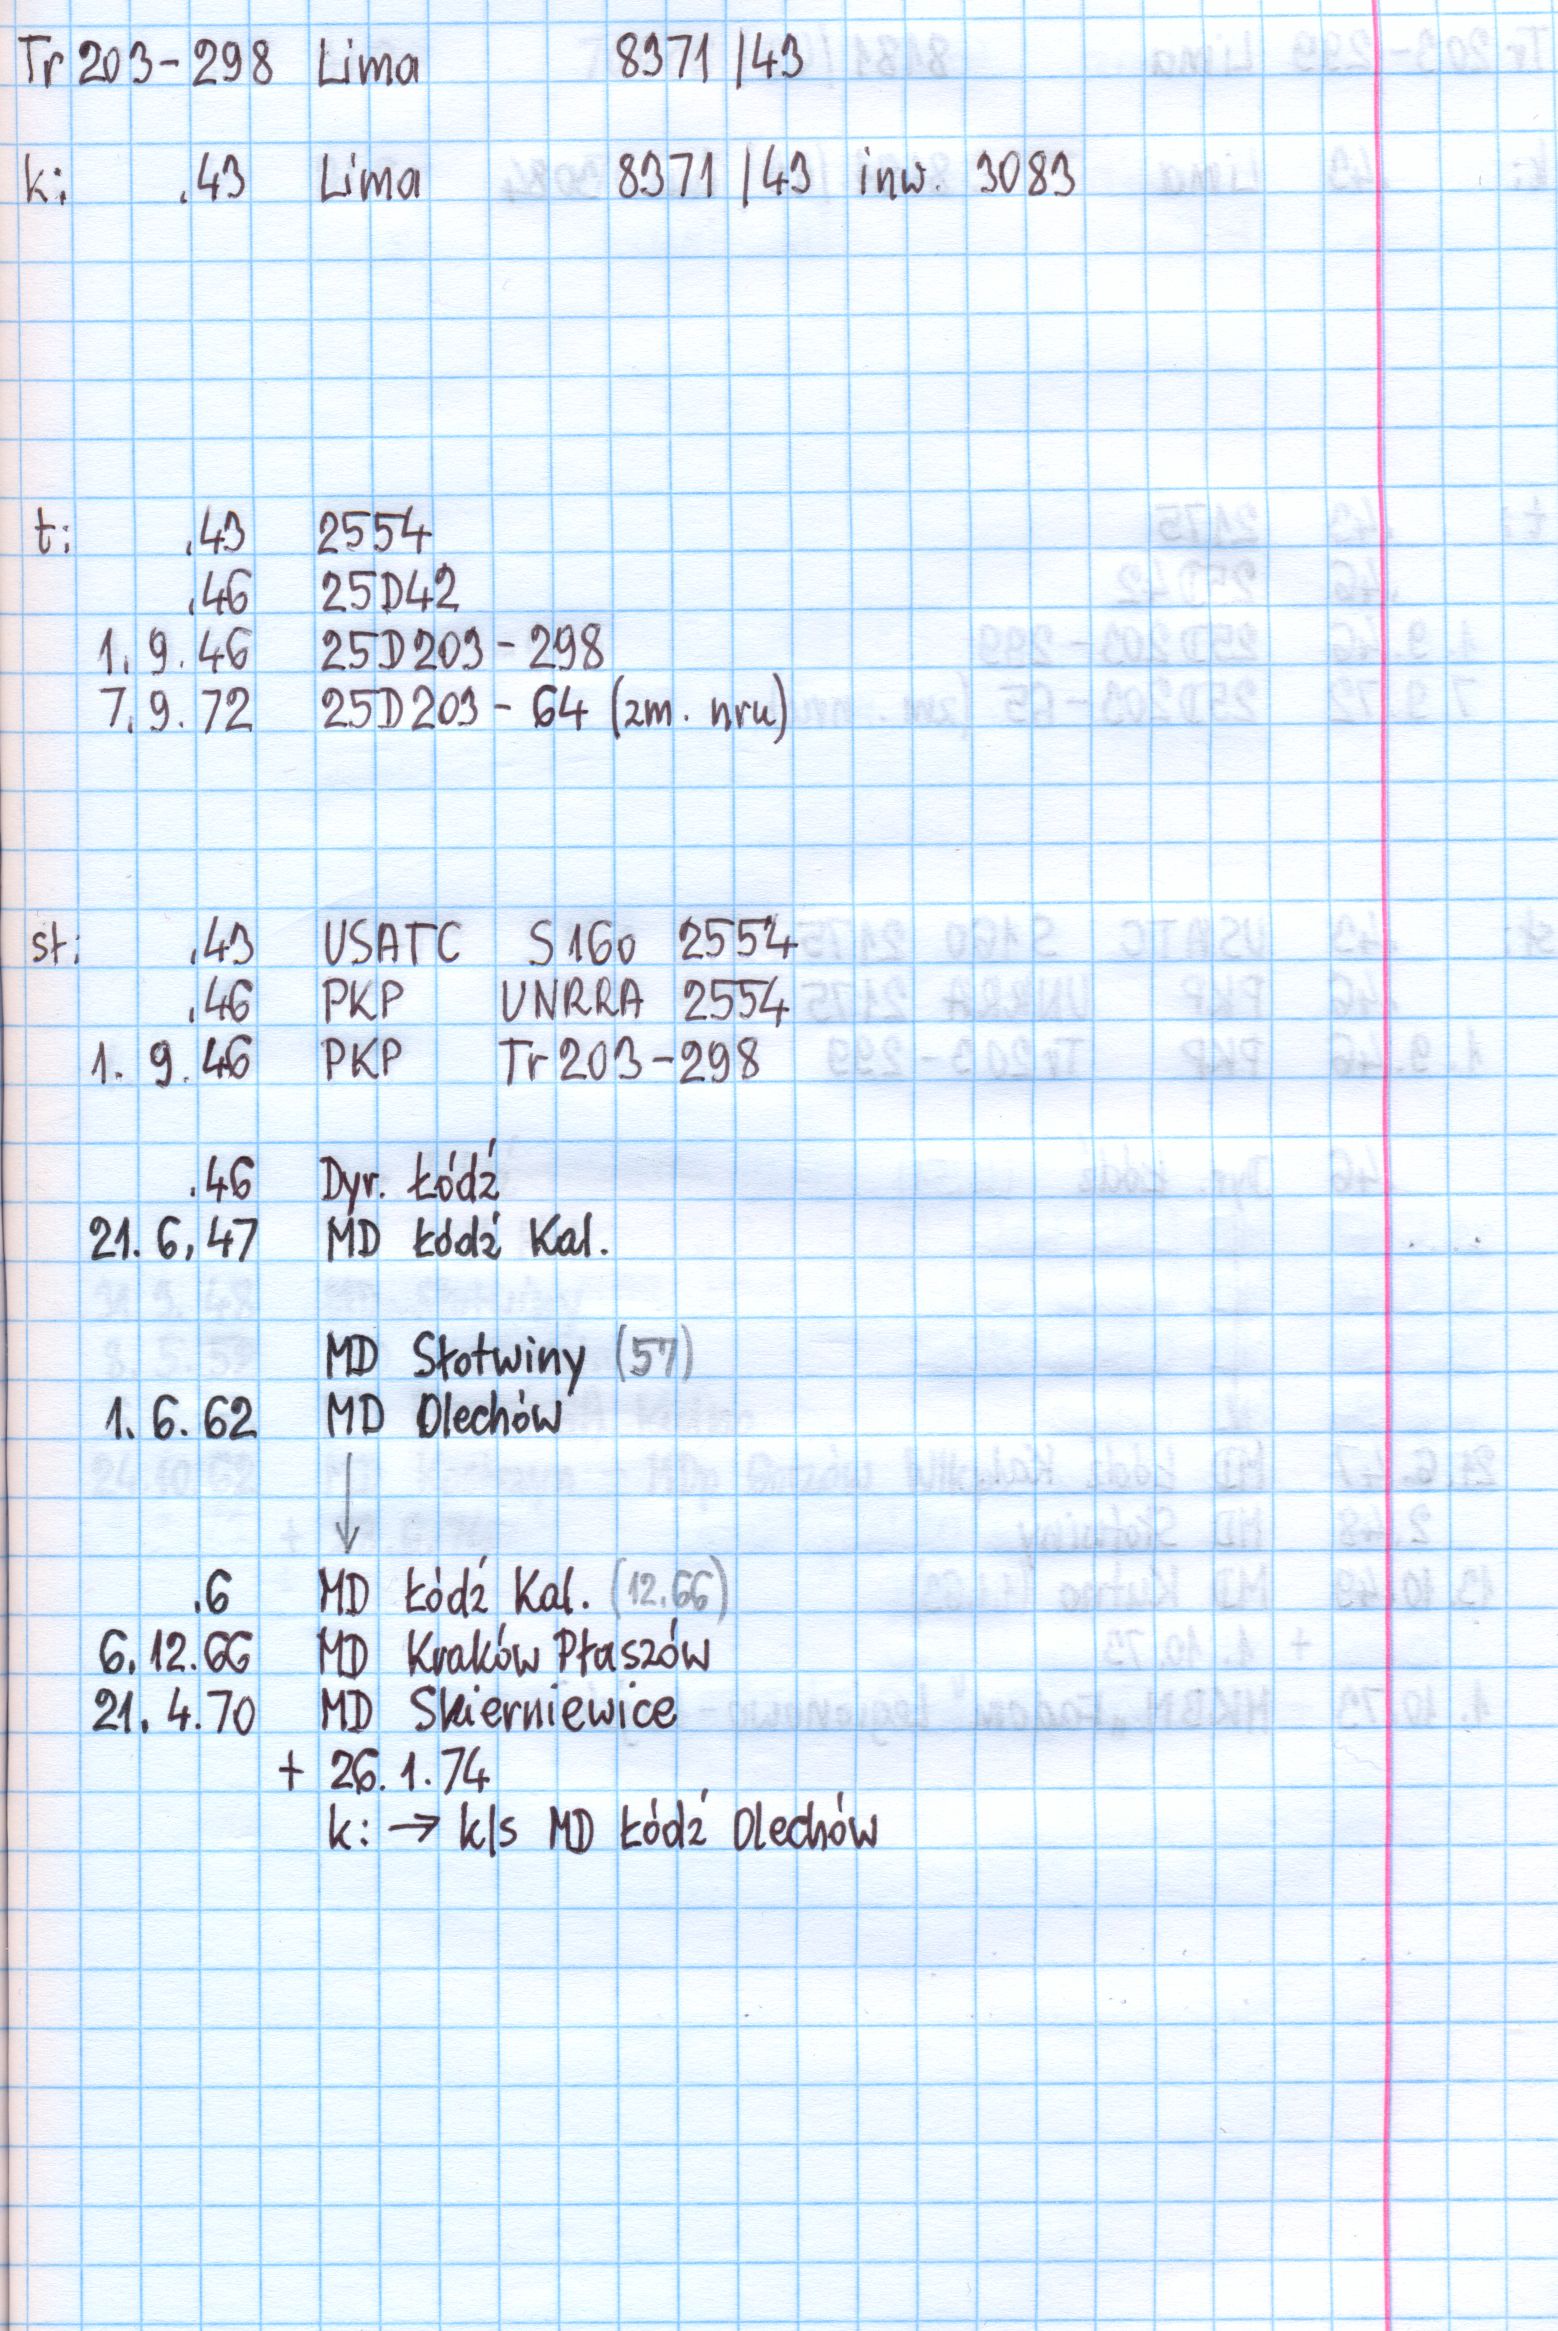 Tr 203-298 Lima 8371 /43
k: .43 Lima 8371 /43 inw. 3083
t: .43 2554
.46 25D42
1. 9. 46 25D203-298
7. 9. 72 25D203-64 (zm. nru)
st: .43 USATC S160 2554
.46 PKP UNRRA 2554
1. 9. 46 PKP Tr 203-298
.46 Dyr. Łódź
21. 6. 47 MD Łódź Kal.
MD Słotwiny (57)
1. 6. 62 MD Olechów
↓
.6 MD Łódź Kal. (12.66)
6. 12. 66 MD Kraków Płaszów
21. 4. 70 MD Skierniewice
+ 26. 1. 74
k: → k/s MD Łódź Olechów